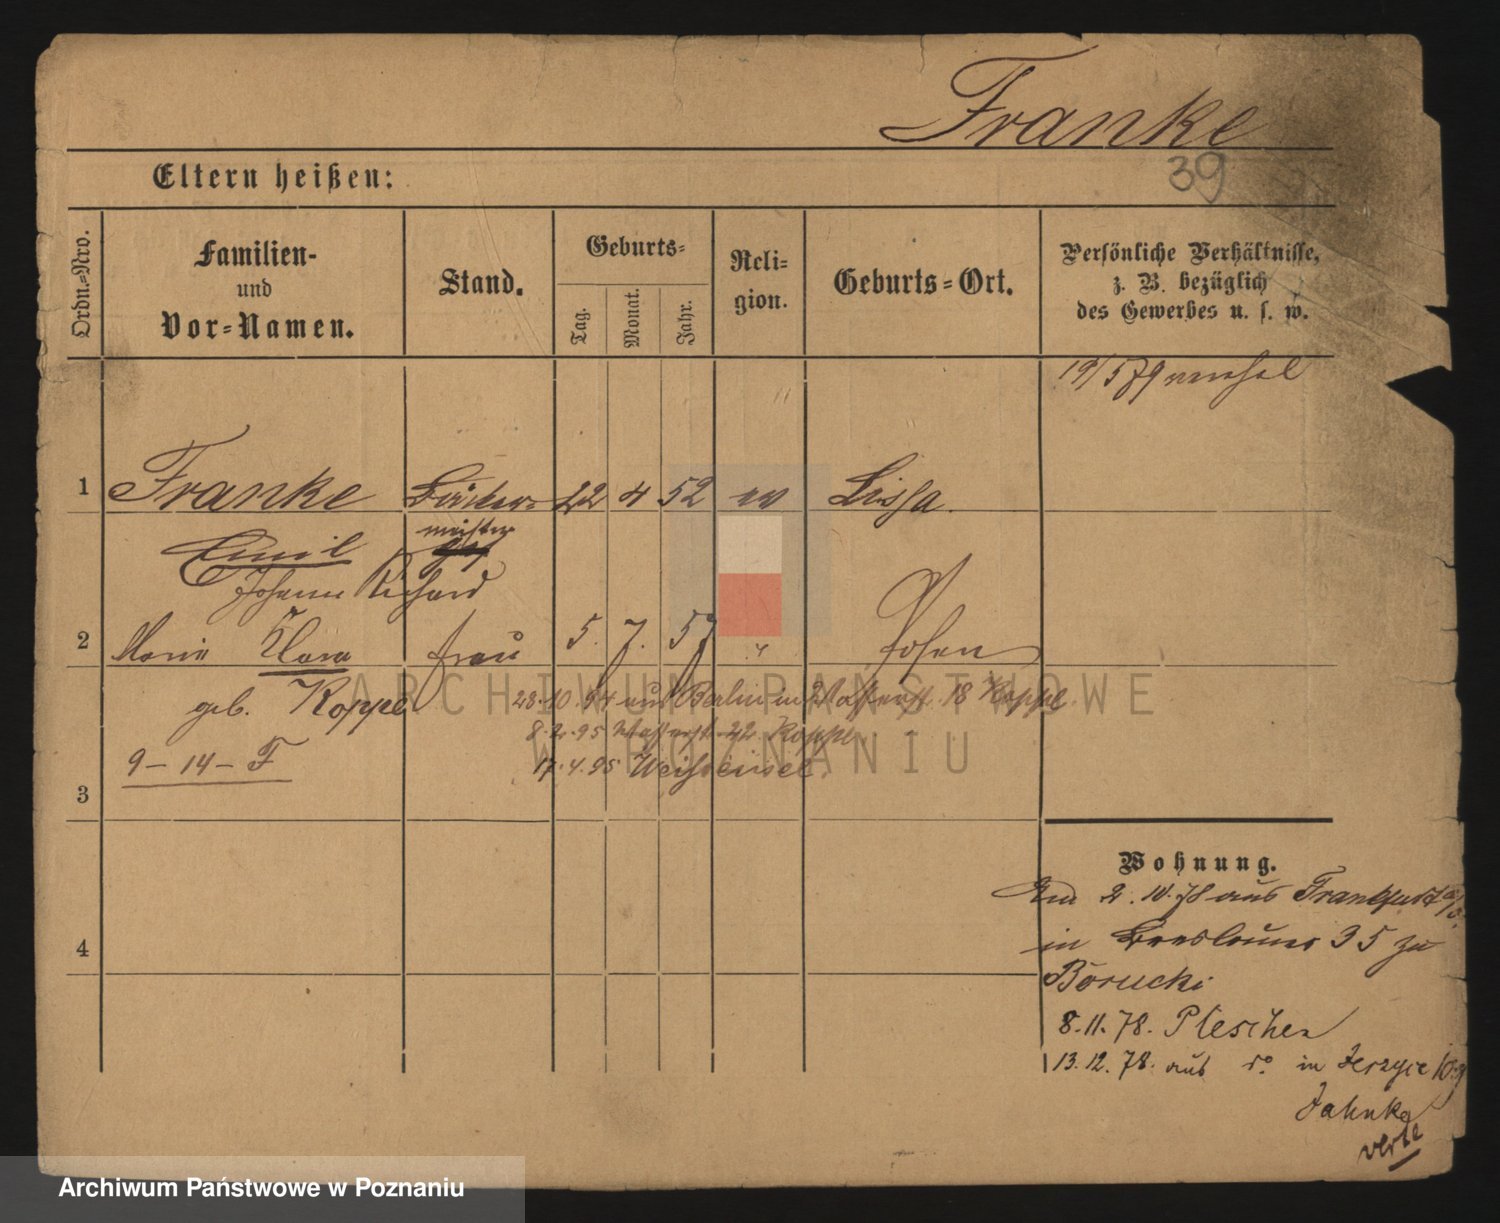 Franke
39
Eltern heißen:
Ordn.=Nro.
Familien-
und
Vor=Namen.
Stand.
Geburts=
Tag.
Monat.
Jahr.
Reli=
gion.
Geburts=Ort.
Persönliche Verhältnisse,
z. B. bezüglich
des Gewerbes u. s. w.
19/5 79
1 Franke Bäcker= 22 4 52 ev Lissa.
meister
Emil
Johann Richard
2 Marie Klara frau 5. 7. 57 " Posen
geb. Koppe
23.10.94 aus Berlin in Wasserst. 18 Koppe
8.2.95 Wasserst. 22 Koppe
9-14-F
17.4.95 Weißensee
3
Wohnung.
2.10.78 aus Frankfurt a/O.
in Breslauer 35 zu
4
Borucki
8.11.78. Pleschen
13.12.78. aus do. in Jerzyce
Jahnke
verte
ARCHIWUM PAŃSTWOWE
W POZNANIU
Archiwum Państwowe w Poznaniu